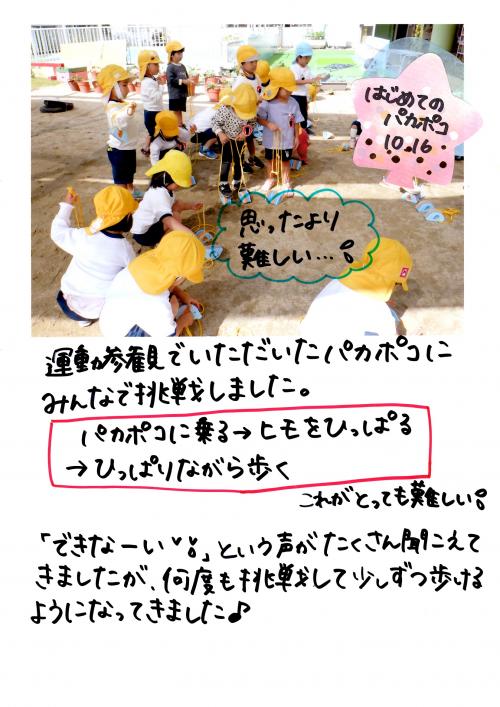 はじめての
パカポコ
10.16
思ったより
難しい…!
運動参観でいただいたパカポコに
みんなで挑戦しました。
パカポコに乗る→ヒモをひっぱる
→ひっぱりながら歩く
これがとっても難しい!
「できなーい!!」という声がたくさん聞こえて
きましたが、何度も挑戦して少しずつ歩ける
ようになってきました♪